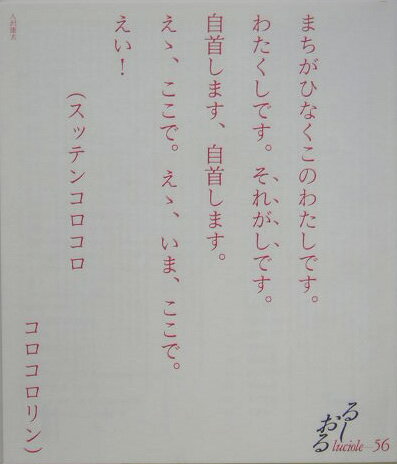 まちがひなくこのわたしです。
わたくしです。それがしです。
自首します、自首します。
えゝ、ここで。えゝ、いま、ここで。
えい！
（スッテンコロコロ
コロコロリン）
るしおる
luciole—56